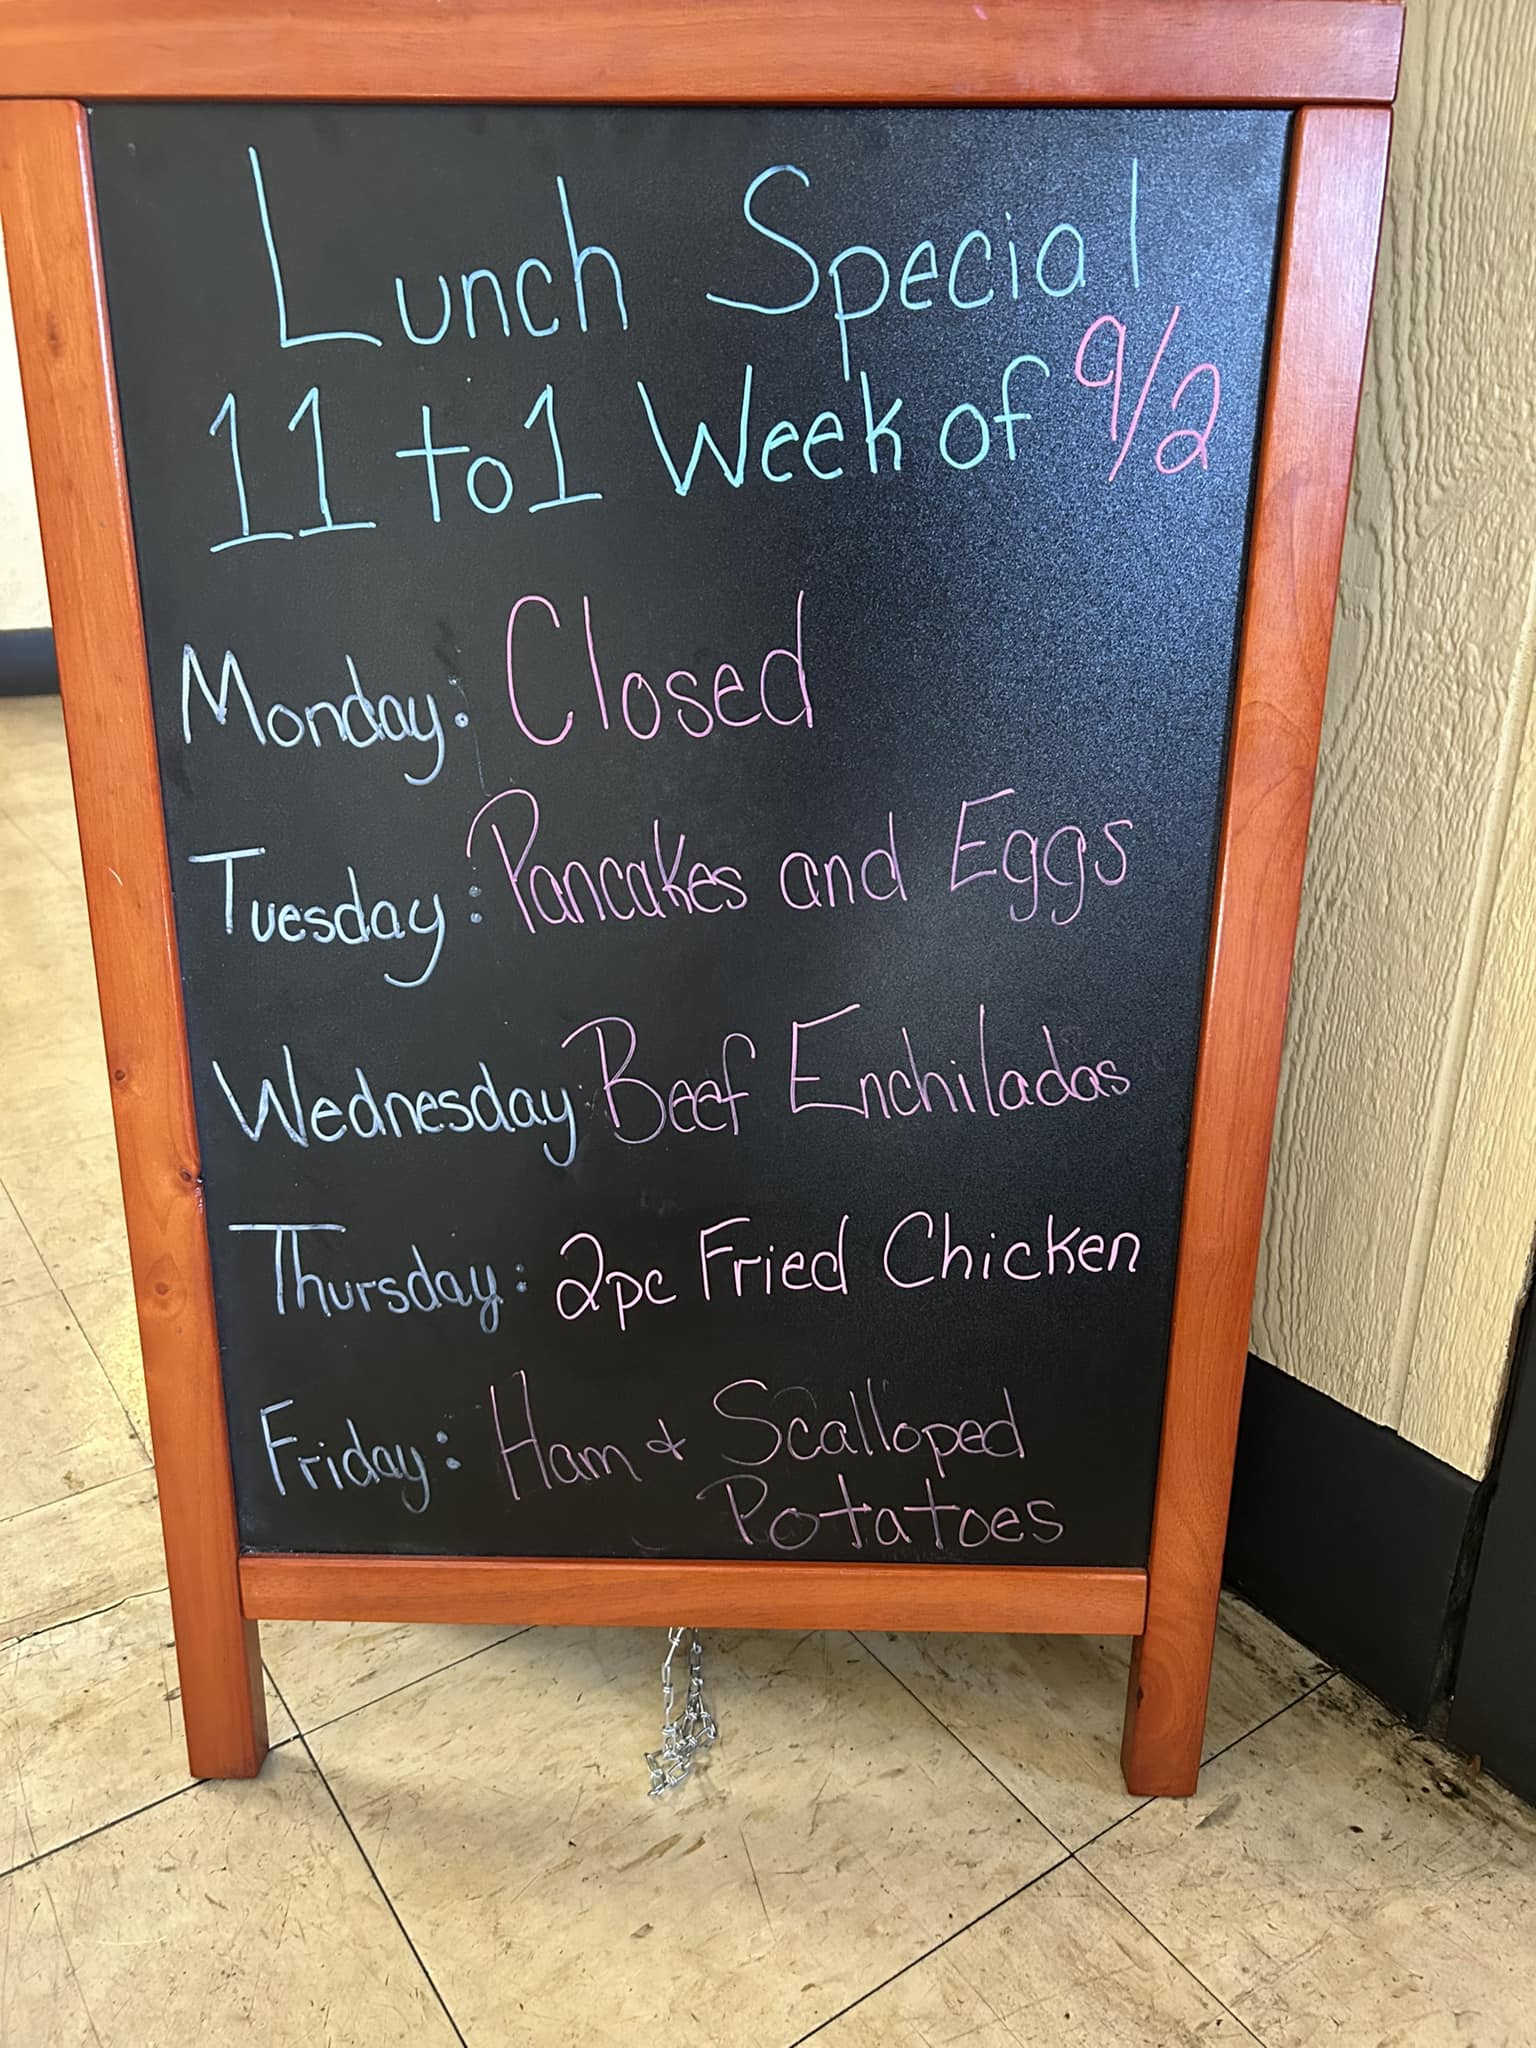 Lunch Special
11 to 1 Week of 9/2
Monday: Closed
Tuesday: Pancakes and Eggs
Wednesday: Beef Enchiladas
Thursday: 2pc Fried Chicken
Friday: Ham & Scalloped
Potatoes